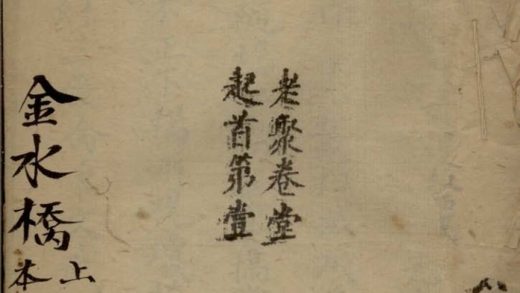 老聚卷堂
起首第壹
金水橋
上本